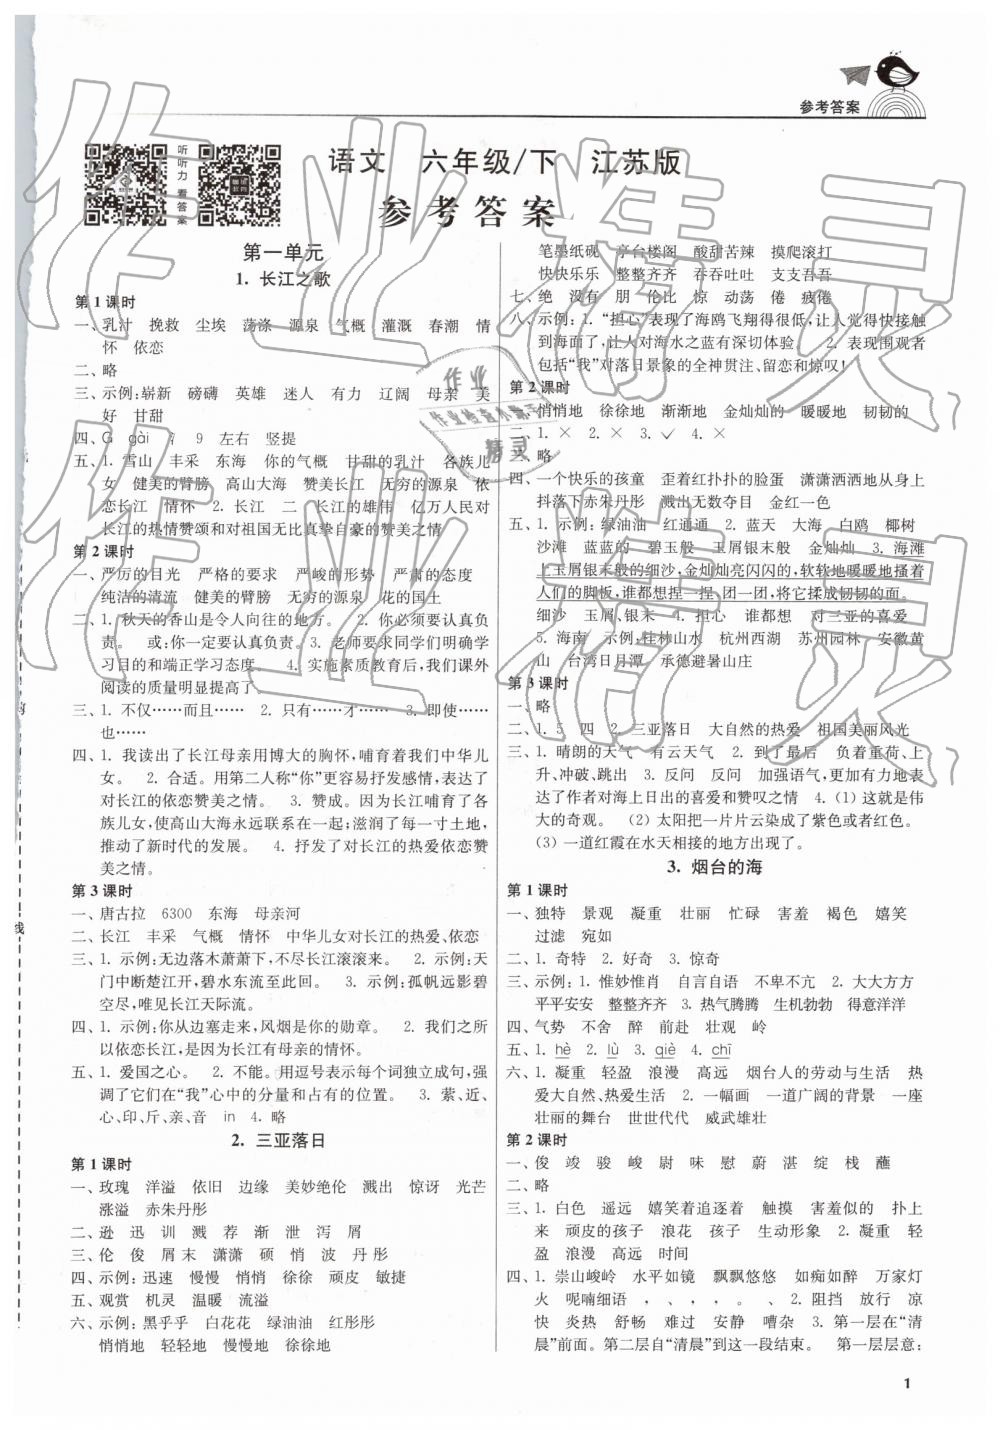 参考答案
听听力 看答案
语文 六年级/下 江苏版
参考答案
第一单元
1. 长江之歌
第1课时
一、乳汁 挽救 尘埃 荡涤 源泉 气概 灌溉 春潮 情
怀 依恋
二、略
三、示例:崭新 磅礴 英雄 迷人 有力 辽阔 母亲 美
好 甘甜
四、G gài 9 左右 竖提
五、1. 雪山 丰采 东海 你的气概 甘甜的乳汁 各族儿
女 健美的臂膀 高山大海 赞美长江 无穷的源泉 依
恋长江 情怀 2. 长江 二 长江的雄伟 亿万人民对
长江的热情赞颂和对祖国无比真挚自豪的赞美之情
第2课时
一、严厉的目光 严格的要求 严峻的形势 严肃的态度
纯洁的清流 健美的臂膀 无穷的源泉 花的国土
二、1. 秋天的香山是令人向往的地方。 2. 你必须要认真负
责。 或:你一定要认真负责。 3. 老师要求同学们明确学
习目的和端正学习态度。 4. 实施素质教育后,我们课外
阅读的质量提高了。
三、1. 不仅……而且…… 2. 只有……才…… 3. 即使……
也……
四、1. 我读出了长江母亲用博大的胸怀,哺育着我们中华儿
女。 2. 合适。用第二人称“你”更容易抒发感情,表达了
对长江的依恋赞美之情。 3. 赞成。因为长江哺育了各
族儿女,使高山大海永远联系在一起;滋润了每一寸土地,
推动了新时代的发展。 4. 抒发了对长江的热爱依恋赞
美之情。
第3课时
一、唐古拉 6300 东海 母亲河
二、长江 丰采 气概 情怀 中华儿女对长江的热爱、依恋
三、1. 示例:无边落木萧萧下,不尽长江滚滚来。 2. 示例:天
门中断楚江开,碧水东流至此回。 3. 示例:孤帆远影碧
空尽,唯见长江天际流。
四、1. 示例:你从边塞走来,风烟是你的勋章。 2. 我们之所
以依恋长江,是因为长江有母亲的情怀。
五、1. 爱国之心。 2. 不能。用逗号表示每个词独立成句,强
调了它们在“我”心中的分量和占有的位置。 3. 萦、近、
心、印、斤、亲、音 in 4. 略
2. 三亚落日
第1课时
一、玫瑰 洋溢 依旧 边缘 美妙绝伦 溅出 惊讶 光芒
涨溢 赤朱丹彤
二、逊 迅 训 溅 荐 渐 泄 泻 屑
三、伦 俊 屑末 潇潇 硕 悄 波 丹彤
四、示例:迅速 慢慢 悄悄 徐徐 顽皮 敏捷
五、观赏 机灵 温暖 流溢
六、示例:黑乎乎 白花花 绿油油 红彤彤
悄悄地 轻轻地 慢慢地 徐徐地
笔墨纸砚 亭台楼阁 酸甜苦辣 摸爬滚打
快快乐乐 整整齐齐 吞吞吐吐 支支吾吾
七、绝 没有 朋 伦比 惊 动荡 倦 疲倦
八、示例:1. “担心”表现了海鸥飞翔得很低,让人觉得快接触
到海面了,让人对海水之蓝有深切体验。 2. 表现围观者
包括“我”对落日景象的全神贯注、留恋和惊叹!
第2课时
一、悄悄地 徐徐地 渐渐地 金灿灿的 暖暖地 韧韧的
二、1. × 2. × 3. √ 4. ×
三、略
四、一个快乐的孩童 歪着红扑扑的脸蛋 潇潇洒洒地从身上
抖落下赤朱丹彤 溅出无数夺目 金红一色
五、1. 示例:绿油油 红通通 2. 蓝天 大海 白鸥 椰树
沙滩 蓝蓝的 碧玉般 玉屑银末般 金灿灿 3. 海滩
上玉屑银末般的细沙,金灿灿亮闪闪的,软软地暖暖地搔着
人们的脚板,谁都想捏一捏,团一团,将它揉成韧韧的面。
细沙 玉屑、银末 4. 担心 谁都想 对三亚的喜爱
5. 海南 示例:桂林山水 杭州西湖 苏州园林 安徽黄
山 台湾日月潭 承德避暑山庄
第3课时
一、略
二、1. 5 四 2. 三亚落日 大自然的热爱 祖国美丽风光
三、1. 晴朗的天气 有云天气 2. 到了最后 负着重荷、上
升、冲破、跳出 3. 反问 反问 加强语气,更加有力地表
达了作者对海上日出的喜爱和赞叹之情 4. (1) 这就是伟
大的奇观。 (2) 太阳把一片片云染成了紫色或者红色。
(3) 一道红霞在水天相接的地方出现了。
3. 烟台的海
第1课时
一、独特 景观 凝重 壮丽 忙碌 害羞 褐色 嬉笑
过滤 宛如
二、1. 奇特 2. 好奇 3. 惊奇
三、示例:1. 惟妙惟肖 自言自语 不卑不亢 2. 大大方方
平平安安 整整齐齐 3. 热气腾腾 生机勃勃 得意洋洋
四、气势 不舍 醉 前赴 壮观 岭
五、1. hè 2. lù 3. qiè 4. chī
六、1. 凝重 轻盈 浪漫 高远 烟台人的劳动与生活 热
爱大自然、热爱生活 2. 一幅画 一道广阔的背景 一座
壮丽的舞台 世世代代 威武雄壮
第2课时
一、俊 竣 骏 峻 尉 味 慰 蔚 湛 绽 栈 蘸
二、略
三、1. 白色 遥远 嬉笑着追逐着 触摸 害羞似的 扑上
来 顽皮的孩子 浪花 孩子 生动形象 2. 凝重 轻
盈 浪漫 高远 时间
四、1. 崇山峻岭 水平如镜 飘飘悠悠 如痴如醉 万家灯
火 呢喃细语 , 、 , 。 、 2. 阻挡 放行 凉
快 炎热 舒畅 难过 安静 嘈杂 3. 第一层在“清
晨”前面。第二层自“清晨”到这一段结束。 第一层层意:
1